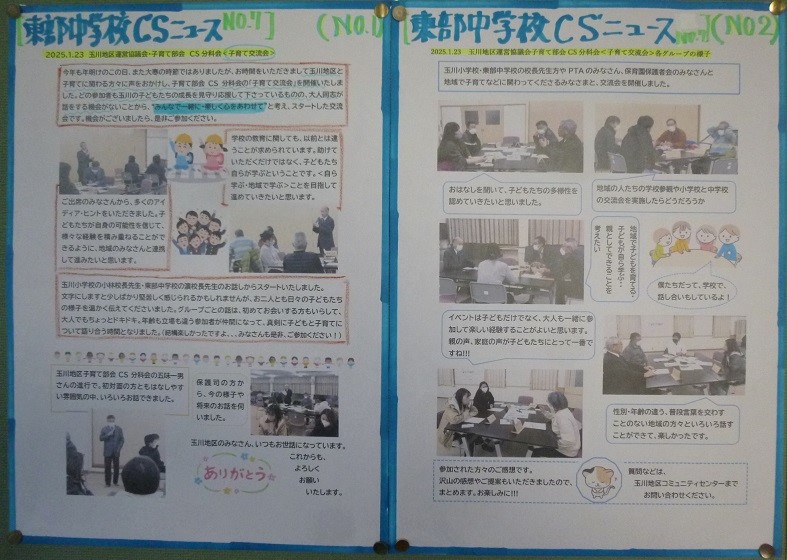 [東部中学校CSニュース NO.7] (NO.1)
2025.1.23 玉川地区運営協議会・子育て部会 CS分科会<子育て交流会>
今年も年明けのこの日、また大寒の時節ではありましたが、お時間をいただきまして玉川地区と
子育てに関わる方々に声をおかけし、子育て部会 CS 分科会の「子育て交流会」を開催いたしま
した。どの参加者も玉川の子どもたちの成長を見守り応援して下さっているものの、大人同志が
話をする機会がないことから、"みんなで一緒に・楽しく心をあわせて"と考え、スタートした交流
会です。機会がございましたら、是非ご参加ください。
学校の教育に関しても、以前とは違
うことが求められています。助けて
いただくだけではなく、子どもたち
自らが学ぶということです。<自ら
学ぶ・地域で学ぶ>ことを目指して
進めていきたいと思います。
ご出席のみなさんから、多くのアイ
ディア・ヒントをいただきました。子
どもたちが自身の可能性を信じて、
様々な経験を積み重ねることがで
きるように、地域のみなさんと連携
して進みたいと思います。
玉川小学校の小林校長先生・東部中学校の濵校長先生のお話しからスタートいたしました。
文字にしますと少しばかり堅苦しく感じられるかもしれませんが、お二人とも日々の子どもたち
の様子を温かく伝えてくださいました。グループごとの話は、初めてお会いする方もいらして、
大人でもちょっとドキドキ。年齢も立場も違う参加者が仲間になって、真剣に子どもと子育てに
ついて語り合う時間となりました。(結構楽しかったですよ、、、みなさんも是非、ご参加ください!)
玉川地区子育て部会 CS 分科会の五味一男
さんの進行で。初対面の方ともはなしやす
い雰囲気の中、いろいろお話できました。
保護司の方か
ら、今の様子や
将来のお話を伺
いました。
玉川地区のみなさん、いつもお世話になっています。
これからも、
よろしく
お願い
いたします。
ありがとう
[東部中学校CSニュース No.7] (NO2)
2025.1.23 玉川地区運営協議会子育て部会 CS分科会<子育て交流会>各グループの様子
玉川小学校・東部中学校の校長先生方や PTA のみなさん、保育園保護者会のみなさんと
地域で子育てなどに関わってくださるみなさまと、交流会を開催しました。
おはなしを聞いて、子どもたちの多様性を
認めていきたいと思いました。
地域の人たちの学校参観や小学校と中学校
の交流会を実施したらどうだろうか
地域で子どもを育てる・
子どもが自ら学ぶ・
親としてできることを
考えたい
僕たちだって、学校で、
話し合いもしているよ!
イベントは子どもだけでなく、大人も一緒に参
加して楽しい経験することがよいと思います。
親の声、家庭の声が子どもたちにとって一番で
すね!!!
性別・年齢の違う、普段言葉を交わす
ことのない地域の方々といろいろ話す
ことができて、楽しかったです。
参加された方々のご感想です。
沢山の感想やご提案もいただきましたので、
まとめます。お楽しみに!!!
質問などは、
玉川地区コミュニティセンターまで
お問い合わせください。